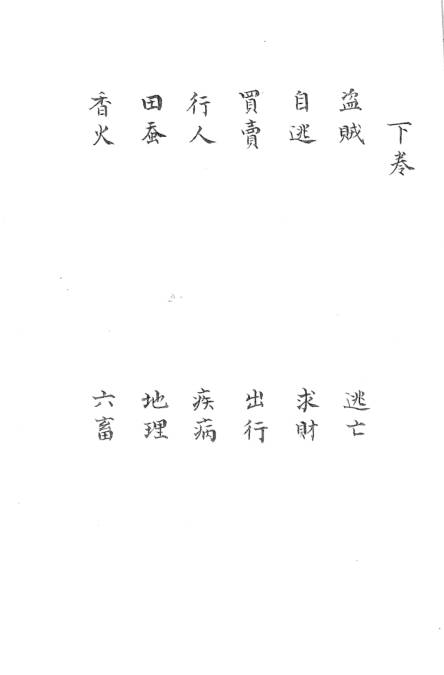 下卷
盜賊　逃亡
自逃　求財
買賣　出行
行人　疾病
田蚕　地理
香火　六畜